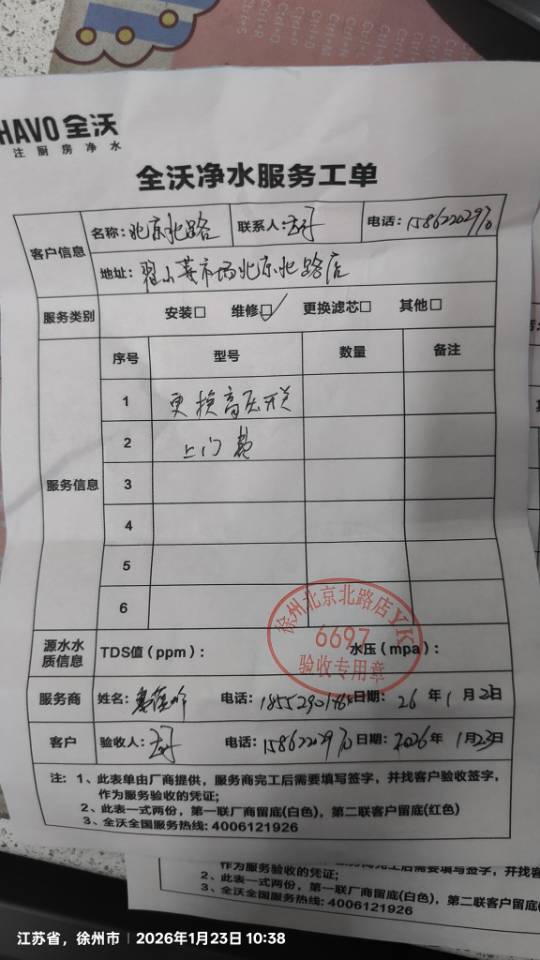 HAVO 全沃
注厨房净水
全沃净水服务工单
客户信息 名称：北京北路 联系人： 电话：
地址： 菜市场北京北路店
服务类别 安装□ 维修☑ 更换滤芯□ 其他□
服务信息 序号 型号 数量 备注
1 更换高压开关
2 上门费
3
4
5
6
徐州北京北路店YK
6697
验收专用章
源水水质信息 TDS值（ppm）： 水压（mpa）：
服务商 姓名： 电话： 日期：26年1月23日
客户 验收人： 电话： 日期：2026年1月23日
注：1、此表单由厂商提供，服务商完工后需要填写签字，并找客户验收签字，
作为服务验收的凭证；
2、此表一式两份，第一联厂商留底(白色)，第二联客户留底(红色)
3、全沃全国服务热线：4006121926
作为服务验收的凭证；
2、此表一式两份，第一联厂商留底(白色)，第二联客户留底(
3、全沃全国服务热线：4006121926
江苏省，徐州市 | 2026年1月23日 10:38